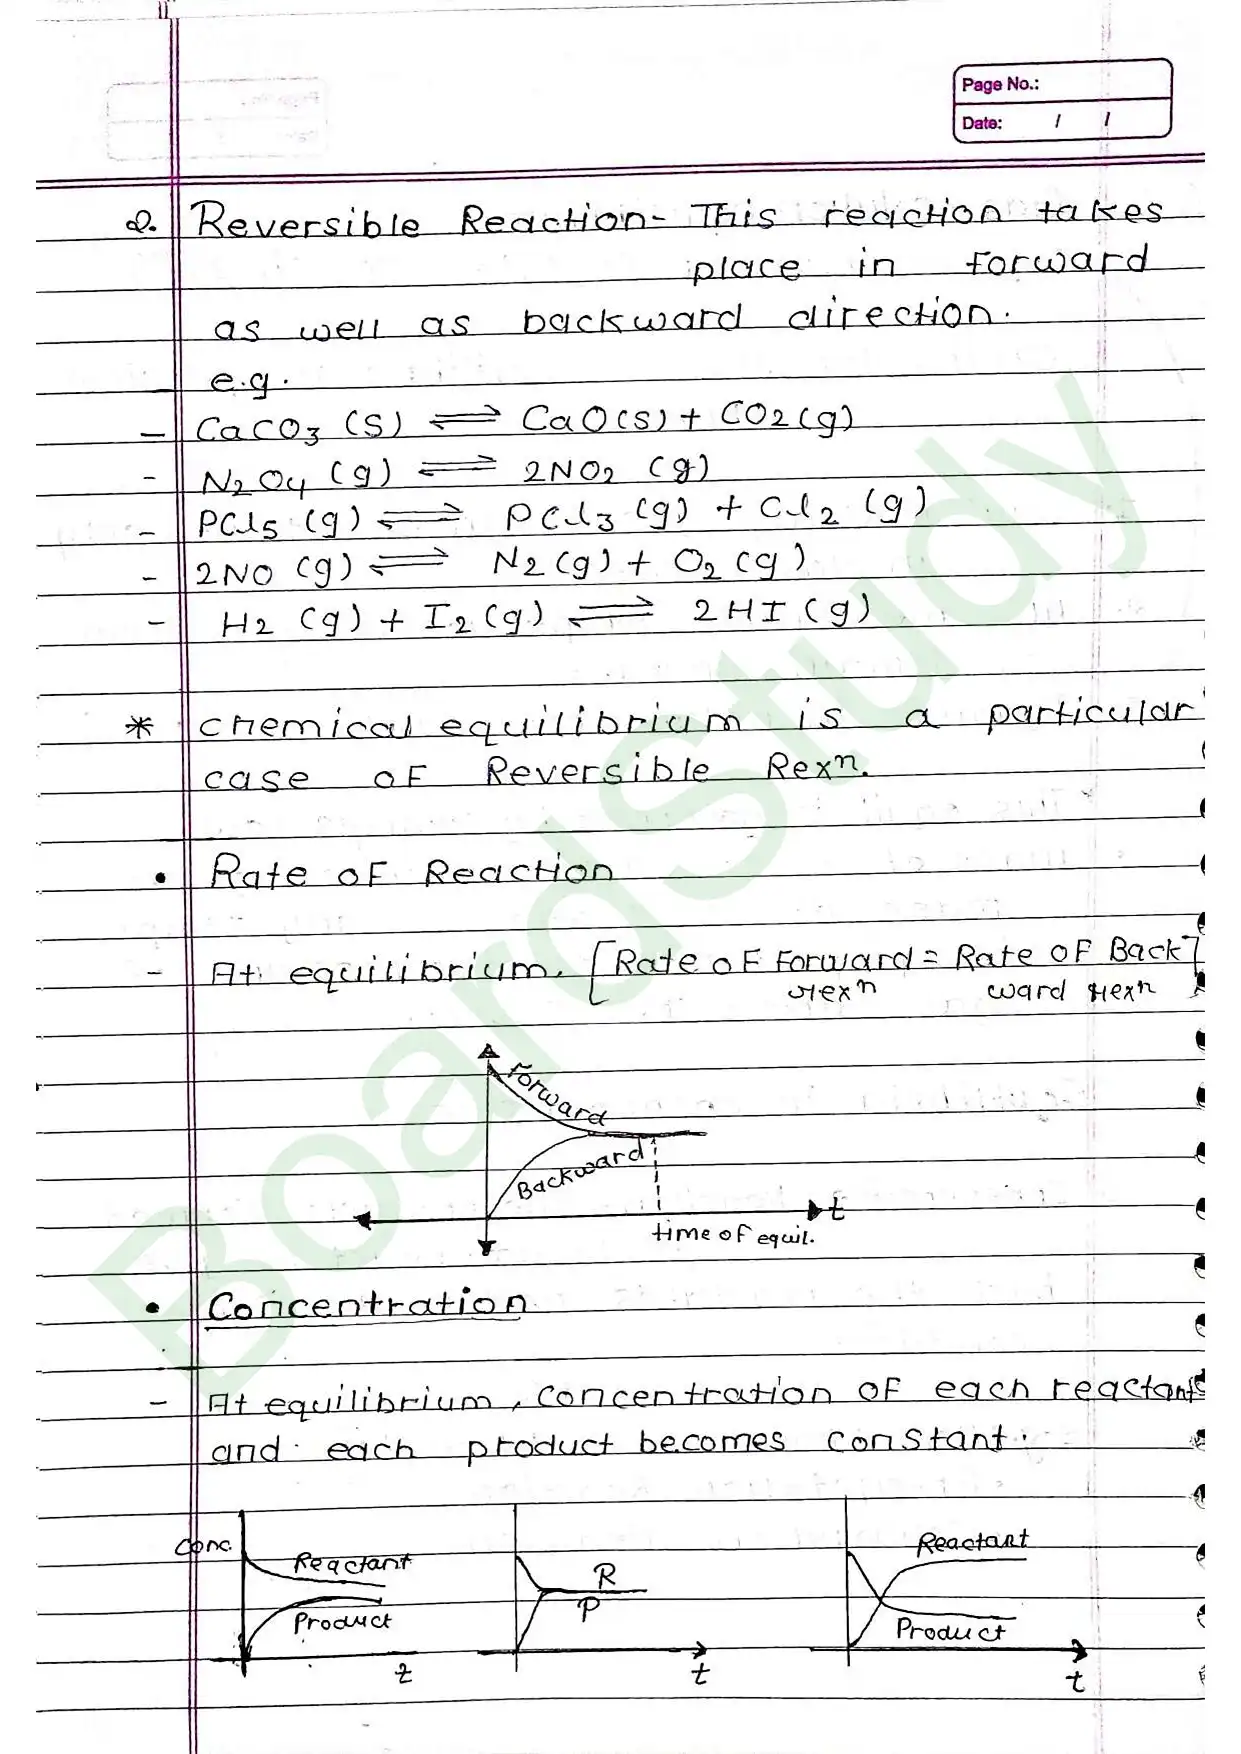 Page No.:
Date: / /
2. Reversible Reaction- This reaction takes
place in forward
as well as backward direction.
e.g.
- CaCO3 (s) ⇌ CaO(s) + CO2(g)
- N2O4 (g) ⇌ 2NO2 (g)
- PCl5 (g) ⇌ PCl3 (g) + Cl2 (g)
- 2NO (g) ⇌ N2 (g) + O2 (g)
- H2 (g) + I2 (g) ⇌ 2HI (g)
* chemical equilibrium is a particular
case of Reversible Rexn.
• Rate of Reaction
- At equilibrium, [Rate of Forward = Rate of Back]
rexn ward rexn
Forward
Backward
t
time of equil.
• Concentration
- At equilibrium, concentration of each reactant
and each product becomes constant.
Conc.
Reactant
Product
t
R
P
t
Reactant
Product
t
BoardStudy